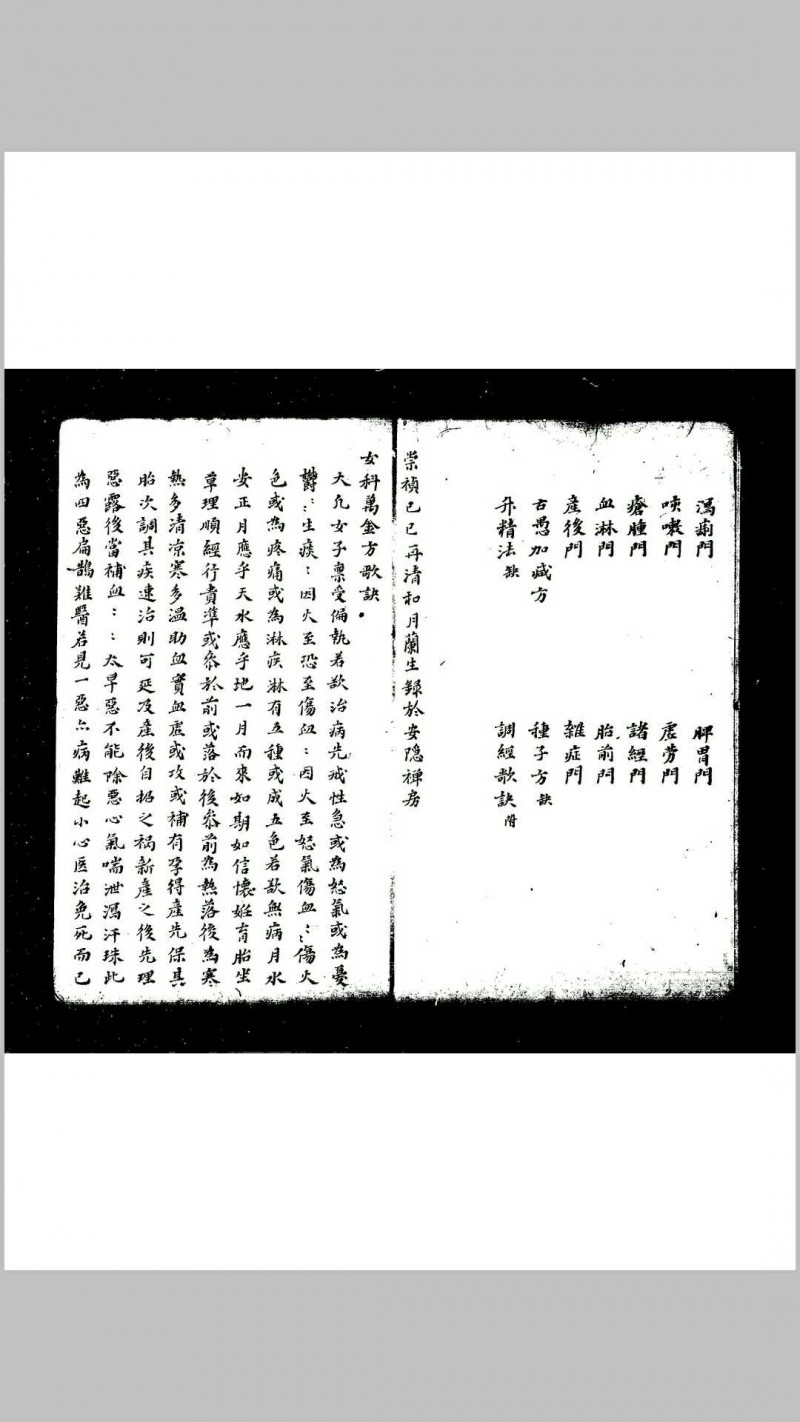 瀉痢門　脾胃門
咳嗽門　虛勞門
瘡腫門　諸經門
血淋門　胎前門
產後門　雜症門
古愚加減方　種子方缺
升精法缺　調經歌訣附
崇禎己巳再清和月蘭生録於安隱禅房
女科萬金方歌訣
大凢女子禀受偏執若欲治病先戒性急或為怒氣或為憂
鬱〻生痰〻因火至恐至傷血〻因火至怒氣傷血〻傷火
色或為疼痛或為淋疾淋有五種或成五色若欲無病月水
安正月應乎天水應乎地一月而來如期如信懷姙育胎坐
草理順經行貴準或叅於前或落於後叅前為熱落後為寒
熱多清凉寒多温助血實血虛或攻或補有孕得產先保其
胎次調其疾速治則可延及產後自招之禍新產之後先理
惡露後當補血〻太早惡不能除惡心氣喘泄瀉汗珠此
為四惡扁鵲難醫若見一惡亦病難起小心医治免死而已